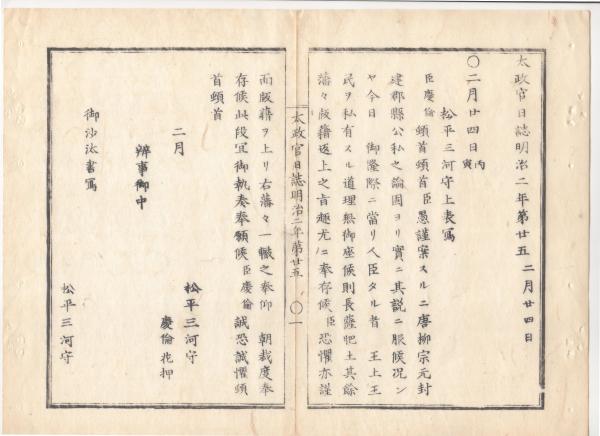 太政官日誌明治二年第廿五 二月廿四日
〇二月廿四日丙寅
松平三河守上表写
臣慶倫頓首頓首臣愚謹案スルニ唐柳宗元封
建郡縣公私之論固ヨリ實ニ其説ニ服候况ン
ヤ今日 御隆際ニ當リ人臣タル者 王土王
民ヲ私有スル道理無御座候則長薩肥土其餘
藩々版籍返上之旨趣尤ニ奉存候臣恐懼亦謹
太政官日誌明治二年第廿五 〇一
而版籍ヲ上リ右藩々一轍之奉仰 朝裁度奉
存候此段宜御執奏奉願候臣慶倫誠恐誠懼頓
首頓首
二月
松平三河守
慶倫花押
辨事御中
御沙汰書写
松平三河守